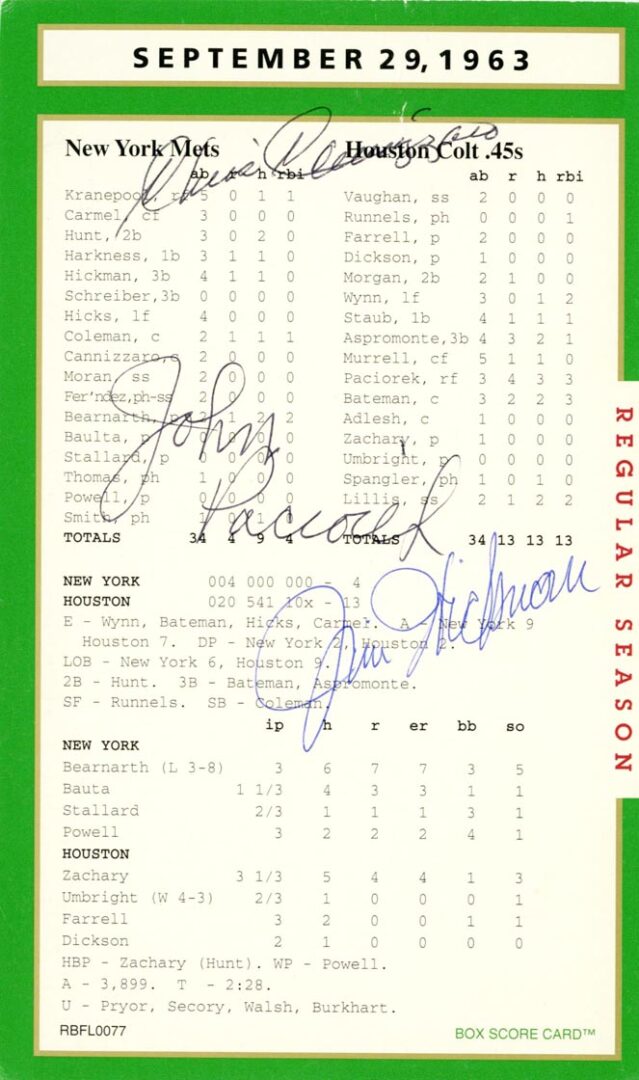 SEPTEMBER 29, 1963
New York Mets
ab r h rbi
Kranepool, rf 5 0 1 1
Carmel, cf 3 0 0 0
Hunt, 2b 3 0 2 0
Harkness, 1b 3 1 1 0
Hickman, 3b 4 1 1 0
Schreiber,3b 0 0 0 0
Hicks, lf 4 0 0 0
Coleman, c 2 1 1 1
Cannizzaro,c 2 0 0 0
Moran, ss 2 0 0 0
Fer'ndez,ph-ss 2 0 0 0
Bearnarth, p 2 1 2 2
Baulta, p 0 0 0 0
Stallard, p 0 0 0 0
Thomas, ph 1 0 0 0
Powell, p 0 0 0 0
Smith, ph 1 0 1 0
TOTALS 34 4 9 4
Houston Colt .45s
ab r h rbi
Vaughan, ss 2 0 0 0
Runnels, ph 0 0 0 1
Farrell, p 2 0 0 0
Dickson, p 1 0 0 0
Morgan, 2b 2 1 0 0
Wynn, lf 3 0 1 2
Staub, 1b 4 1 1 1
Aspromonte,3b 4 3 2 1
Murrell, cf 5 1 1 0
Paciorek, rf 3 4 3 3
Bateman, c 3 2 2 3
Adlesh, c 1 0 0 0
Zachary, p 1 0 0 0
Umbright, p 0 0 0 0
Spangler, ph 1 0 1 0
Lillis, ss 2 1 2 2
TOTALS 34 13 13 13
Chris Cannizzaro
John
Paciorek
Jim Hickman
NEW YORK 004 000 000 - 4
HOUSTON 020 541 10x - 13
E - Wynn, Bateman, Hicks, Carmel. A - New York 9
Houston 7. DP - New York 2, Houston 2.
LOB - New York 6, Houston 9.
2B - Hunt. 3B - Bateman, Aspromonte.
SF - Runnels. SB - Coleman.
ip h r er bb so
NEW YORK
Bearnarth (L 3-8) 3 6 7 7 3 5
Bauta 1 1/3 4 3 3 1 1
Stallard 2/3 1 1 1 3 1
Powell 3 2 2 2 4 1
HOUSTON
Zachary 3 1/3 5 4 4 1 3
Umbright (W 4-3) 2/3 1 0 0 0 1
Farrell 3 2 0 0 1 1
Dickson 2 1 0 0 0 0
HBP - Zachary (Hunt). WP - Powell.
A - 3,899. T - 2:28.
U - Pryor, Secory, Walsh, Burkhart.
RBFL0077
BOX SCORE CARD™
REGULAR SEASON